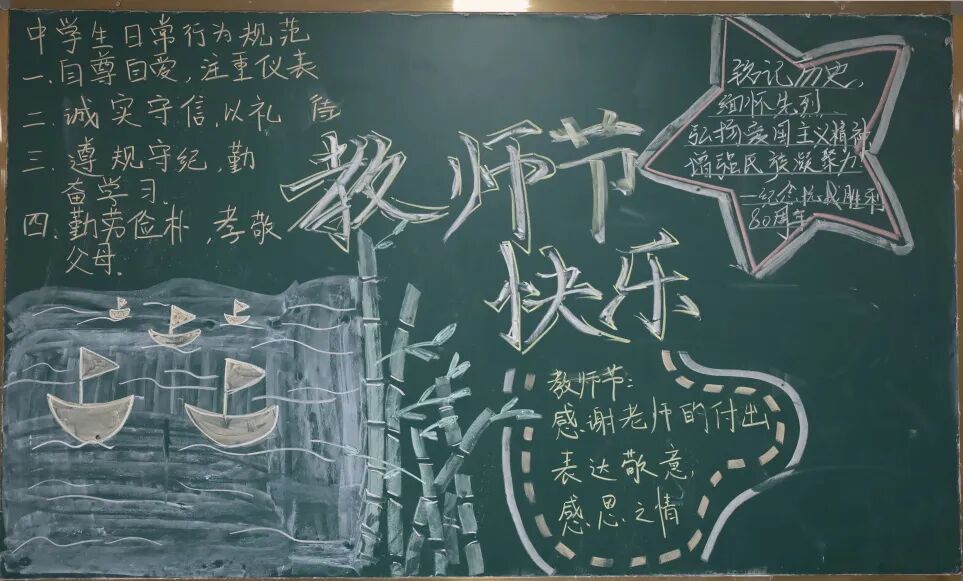 中学生日常行为规范
一.自尊自爱,注重仪表
二.诚实守信,以礼
三.遵规守纪,勤
奋学习.
四.勤劳俭朴,孝敬
父母.
教师节
快乐
铭记历史,
缅怀先烈
弘扬爱国主义精神
强民族凝聚力
—纪念抗战胜利
80周年
教师节:
感谢老师的付出
表达敬意,
感恩之情